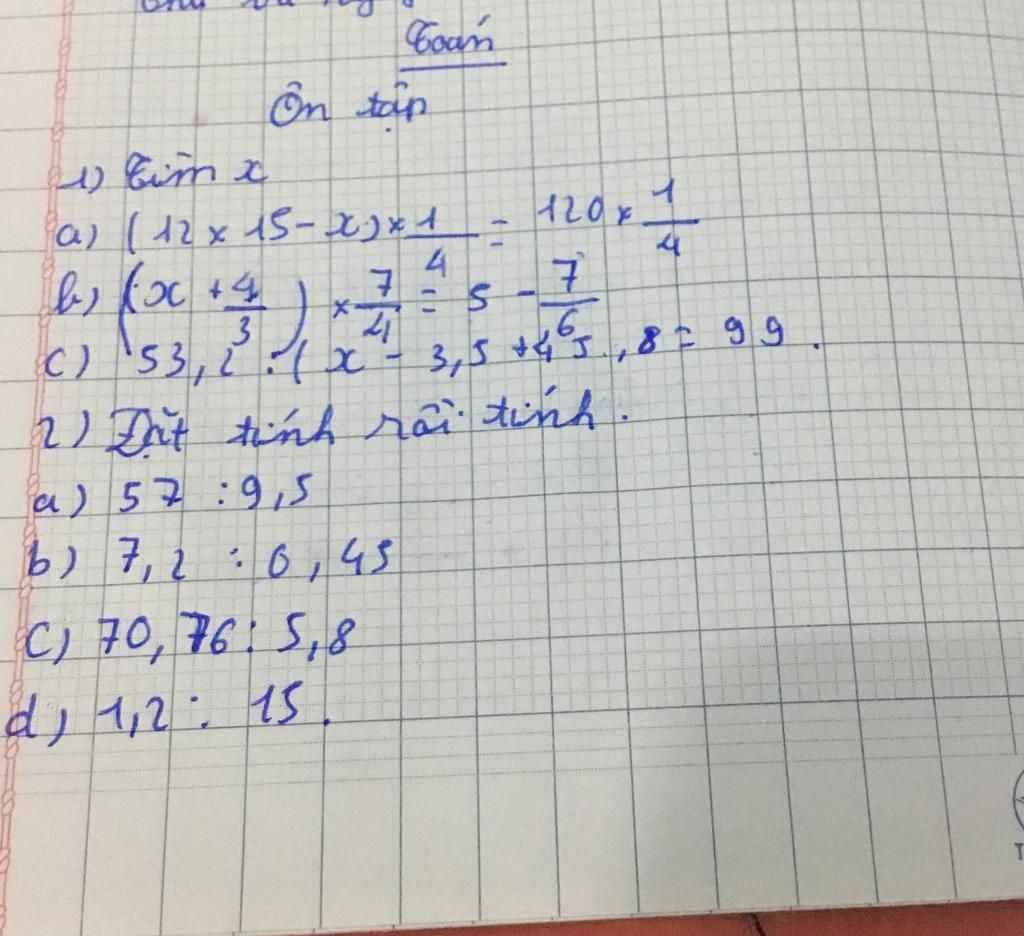 Toán
Ôn tập
1) Tìm x
a) (12 x 15 - x) x 1/4 = 120 x 1/4
b) (x + 4/3) x 7/4 = 5 - 7/6
c) 53,2 : ( x - 3,5 + 45,8 = 99.
2) Đặt tính rồi tính.
a) 57 : 9,5
b) 7,2 : 0,45
c) 70,76 : 5,8
d) 1,2 : 15.